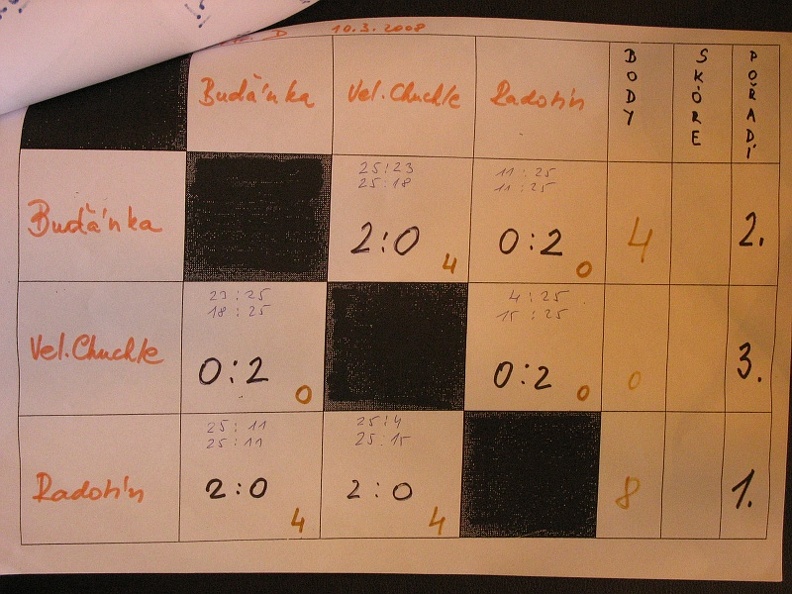 D 10.3.2008
Buďánka Vel.Chuchle Radotín BODY SKÓRE POŘADÍ
25:23 11:25
25:18 11:25
Buďánka 2:0 4 0:2 0 4 2.
23:25 4:25
18:25 15:25
Vel.Chuchle 0:2 0 0:2 0 0 3.
25:11 25:4
25:11 25:15
Radotín 2:0 4 2:0 4 8 1.